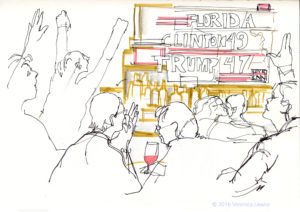 FLORIDA
CLINTON 49
TRUMP 47
© 2016 Veronica Lawlor